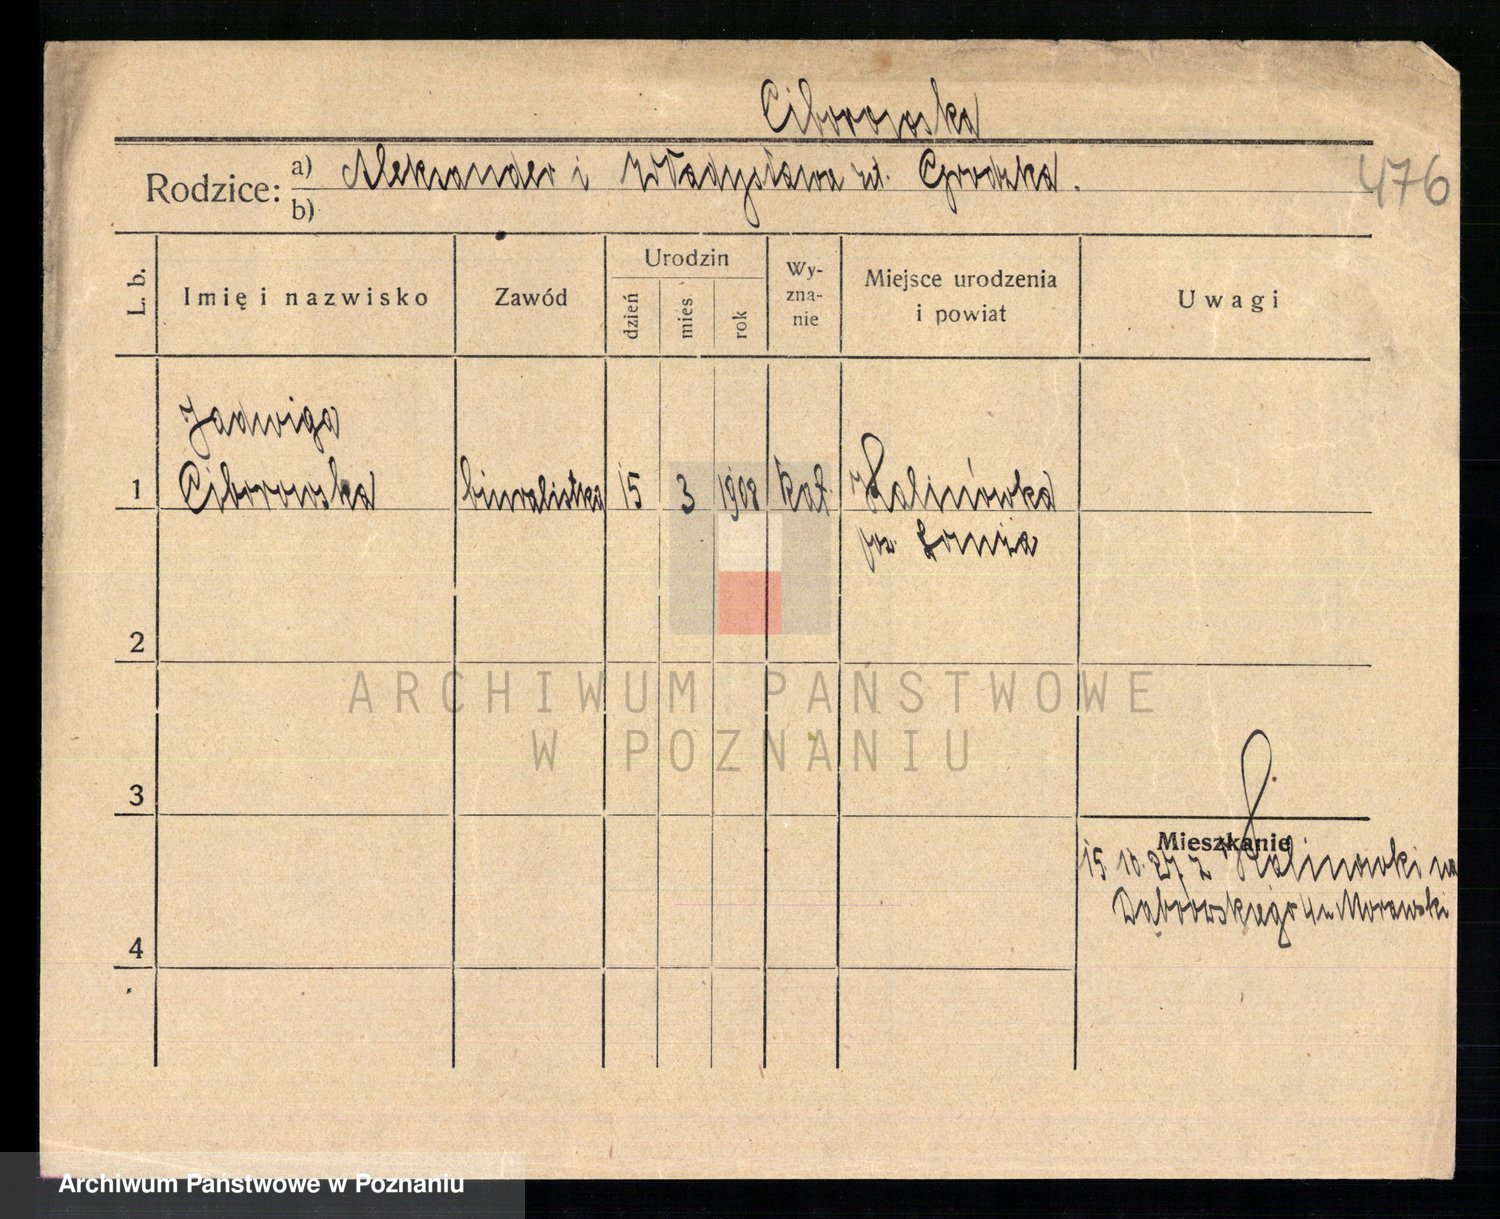 Ciborowska
Rodzice: a) Aleksander i Władysława rz. Grodzka.
b)
476
L. b.
Imię i nazwisko
Zawód
Urodzin
dzień
mies
rok
Wy-
zna-
nie
Miejsce urodzenia
i powiat
Uwagi
Jadwiga
1 Ciborowska biuralistka 15 3 1908 kat. Kalinówka
pow. Łomża
2
ARCHIWUM PAŃSTWOWE
W POZNANIU
3
Mieszkanie
15 10. 27 z Kalinowki na
Dąbrowskiego 4 u Morawski
4
Archiwum Państwowe w Poznaniu